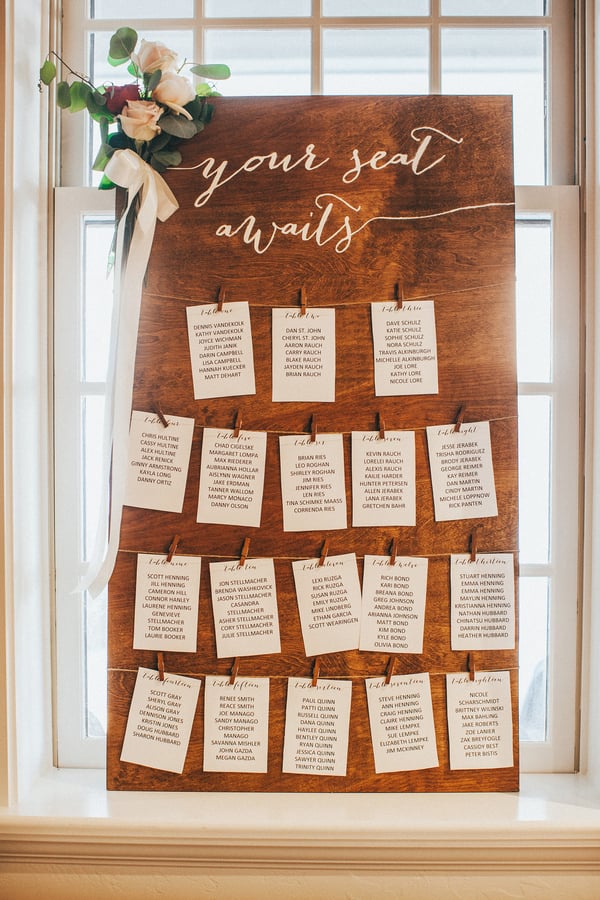 your seat
awaits
table one
DENNIS VANDEKOLK
KATHY VANDEKOLK
JOYCE WICHMAN
JUDITH JANIK
DARIN CAMPBELL
LISA CAMPBELL
HANNAH KUECKER
MATT DEHART
table two
DAN ST. JOHN
CHERYL ST. JOHN
AARON RAUCH
CARRY RAUCH
BLAKE RAUCH
JAYDEN RAUCH
BRIAN RAUCH
table three
DAVE SCHULZ
KATIE SCHULZ
SOPHIE SCHULZ
NORA SCHULZ
TRAVIS ALKINBURGH
MICHELLE ALKINBURGH
JOE LORE
KATHY LORE
NICOLE LORE
table four
CHRIS HULTINE
CASSY HULTINE
ALEX HULTINE
JACK RENICK
GINNY ARMSTRONG
KAYLA LONG
DANNY ORTIZ
table five
CHAD CIGELSKE
MARGARET LOMPA
MAX RIEDERE
AUBRIANNA HOLLAR
AISLYNN WAGNER
JAKE ERDMAN
TANNER WALLOM
MARCY MONACO
DANNY OLSON
table six
BRIAN RIES
LEO ROGHAN
SHIRLEY ROGHAN
JIM RIES
JENNIFER RIES
LEN RIES
TINA SCHIMKE MAASS
CORRENDA RIES
table seven
KEVIN RAUCH
LORELEI RAUCH
ALEXIS RAUCH
KAILIE HARDER
HUNTER PETERSEN
ALLEN JERABEK
LANA JERABEK
GRETCHEN BAHR
table eight
JESSE JERABEK
TRISHA RODRIGUEZ
BRODY JERABEK
GEORGE REIMER
KAY REIMER
DAN MARTIN
CINDY MARTIN
MICHELE LOPPNOW
RICK PANTEN
table nine
SCOTT HENNING
JILL HENNING
CAMERON HILL
CONNOR HANLEY
LAURENE HENNING
GENEVIEVE
STELLMACHER
TOM BOOKER
LAURIE BOOKER
table ten
JON STELLMACHER
BRENDA WASHKOVICK
JASON STELLMACHER
CASANDRA
STELLMACHER
ASHER STELLMACHER
CORY STELLMACHER
JULIE STELLMACHER
table eleven
LEXI RUZGA
RICK RUZGA
SUSAN RUZGA
EMILY RUZGA
MIKE LINBERG
ETHAN GARCIA
SCOTT WEARINGEN
table twelve
RICH BOND
KARI BOND
BREANA BOND
GREG JOHNSON
ANDREA BOND
ARIANNA JOHNSON
MATT BOND
KIM BOND
KYLE BOND
OLIVIA BOND
table thirteen
STUART HENNING
EMMA HENNING
EMMA HENNING
MAYLUN HENNING
KRISTIANNA HENNING
NATHAN HUBBARD
CHINATSU HUBBARD
DARRIN HUBBARD
HEATHER HUBBARD
table fourteen
SCOTT GRAY
SHERYL GRAY
ALISON GRAY
DENNISON JONES
KRISTIN JONES
DOUG HUBBARD
SHARON HUBBARD
table fifteen
RENEE SMITH
REACE SMITH
JOE MANAGO
SANDY MANAGO
CHRISTOPHER
MANAGO
SAVANNA MISHLER
JOHN GAZDA
MEGAN GAZDA
table sixteen
PAUL QUINN
PATTI QUINN
RUSSELL QUINN
DANA QUINN
HAYLEE QUINN
BENTLEY QUINN
RYAN QUINN
JESSICA QUINN
SAWYER QUINN
TRINITY QUINN
table seventeen
STEVE HENNING
ANN HENNING
CRAIG HENNING
CLAIRE HENNING
MIKE LEMPKE
SUE LEMPKE
ELIZABETH LEMPKE
JIM MCKINNEY
table eighteen
NICOLE
SCHARSCHMIDT
BRITTNEY WILINSKI
MAX BAHLING
JAKE ROBERTS
ZOE WILINSKI
ZAK BREYFOGLE
CASSIDY BEST
PETER BISTIS